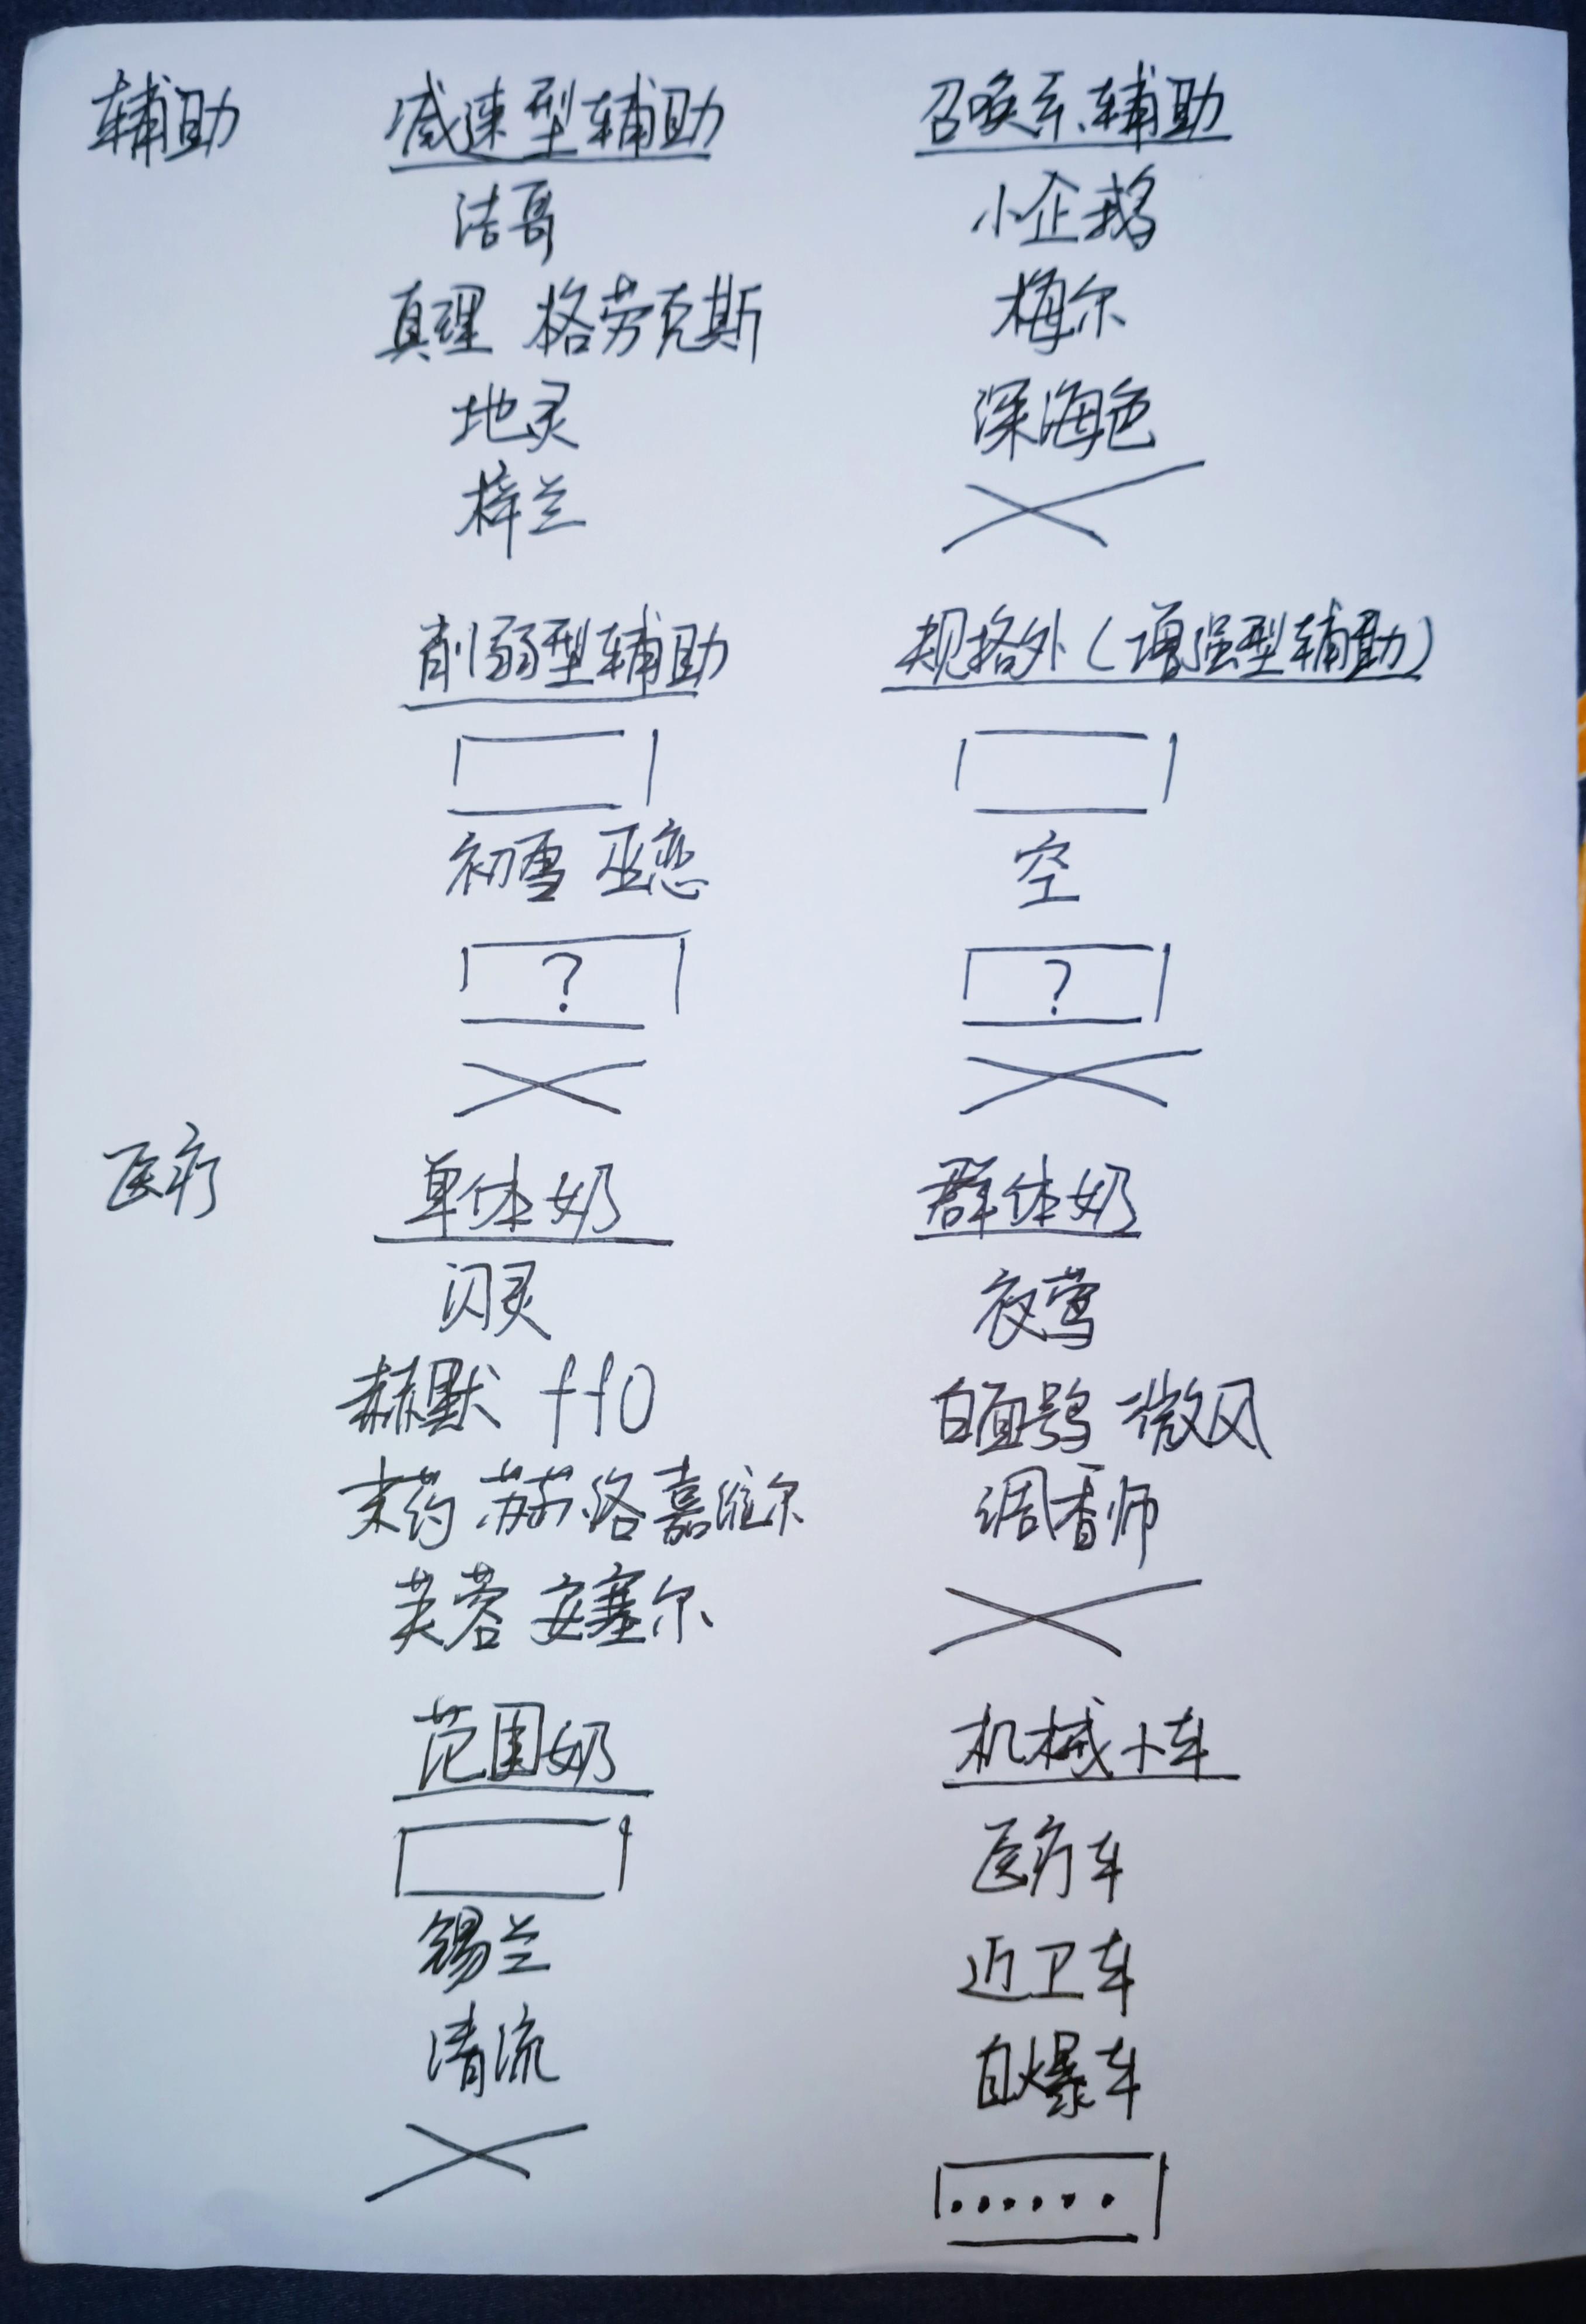 辅助 减速型辅助 召唤系辅助
洁哥 小企鹅
真理 格劳克斯 梅尔
地灵 深海色
梓兰
削弱型辅助 规格外（增强型辅助）
初雪 巫恋 空
? ?
医疗 单体奶 群体奶
闪灵 夜莺
赫默 白面鸮 微风
末药 苏苏洛 嘉维尔 调香师
芙蓉 安塞尔
范围奶 机械小车
医疗车
锡兰 近卫车
清流 自爆车
······